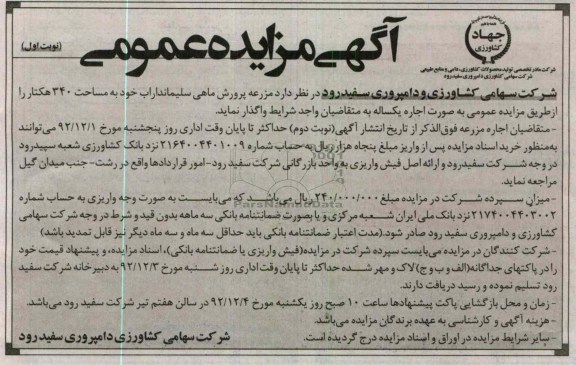 جهاد
کشاورزی
شرکت مادر تخصصی تولید محصولات کشاورزی، دامی و منابع طبیعی
شرکت سهامی کشاورزی دامپروری سفیدرود
آگهی مزایده عمومی
(نوبت اول)
شرکت سهامی کشاورزی و دامپروری سفیدرود در نظر دارد مزرعه پرورش ماهی سلیمانداراب خود به مساحت ۳۴۰ هکتار را
ازطریق مزایده عمومی به صورت اجاره یکساله به متقاضیان واجد شرایط واگذار نماید.
- متقاضیان اجاره مزرعه فوق‌الذکر از تاریخ انتشار آگهی(نوبت دوم) حداکثر تا پایان وقت اداری روز پنجشنبه مورخ ۹۲/۱۲/۱ می‌توانند
به‌منظور خرید اسناد مزایده پس از واریز مبلغ پنجاه هزار ریال به حساب شماره ۲۱۶۴۰۰۴۴۰۱۰۰۹ نزد بانک کشاورزی شعبه سپیدرود
در وجه شرکت سفیدرود و ارائه اصل فیش واریزی به واحد بازرگانی شرکت سفید رود-امور قراردادها واقع در رشت- جنب میدان گیل
مراجعه نماید.
- میزان سپرده شرکت در مزایده مبلغ ۲۴۰/۰۰۰/۰۰۰ ریال می‌باشد که می‌بایست به صورت وجه واریزی به حساب شماره
۲۱۷۴۰۰۴۴۰۳۰۰۲ نزد بانک ملی ایران شعبه مرکزی و یا بصورت ضمانتنامه بانکی سه ماهه بدون قید و شرط در وجه شرکت سهامی
کشاورزی و دامپروری سفید رود صادر شود.(مدت اعتبار ضمانتنامه بانکی باید حداقل سه ماه و سه ماه دیگر نیز قابل تمدید باشد)
- شرکت کنندگان در مزایده می‌بایست سپرده شرکت در مزایده(فیش واریزی یا ضمانتنامه بانکی)، اسناد مزایده، و پیشنهاد قیمت خود
را در پاکتهای جداگانه(الف و ب و ج) لاک و مهر شده حداکثر تا پایان وقت اداری روز شنبه مورخ ۹۲/۱۲/۳ به دبیرخانه شرکت سفید
رود تسلیم نموده و رسید دریافت دارند.
- زمان و محل بازگشایی پاکت پیشنهادها ساعت ۱۰ صبح روز یکشنبه مورخ ۹۲/۱۲/۴ در سالن هفتم تیر شرکت سفید رود می‌باشد.
- هزینه آگهی و کارشناسی به عهده برندگان مزایده می‌باشد.
- سایر شرایط مزایده در اوراق و اسناد مزایده درج گردیده است.
شرکت سهامی کشاورزی دامپروری سفید رود